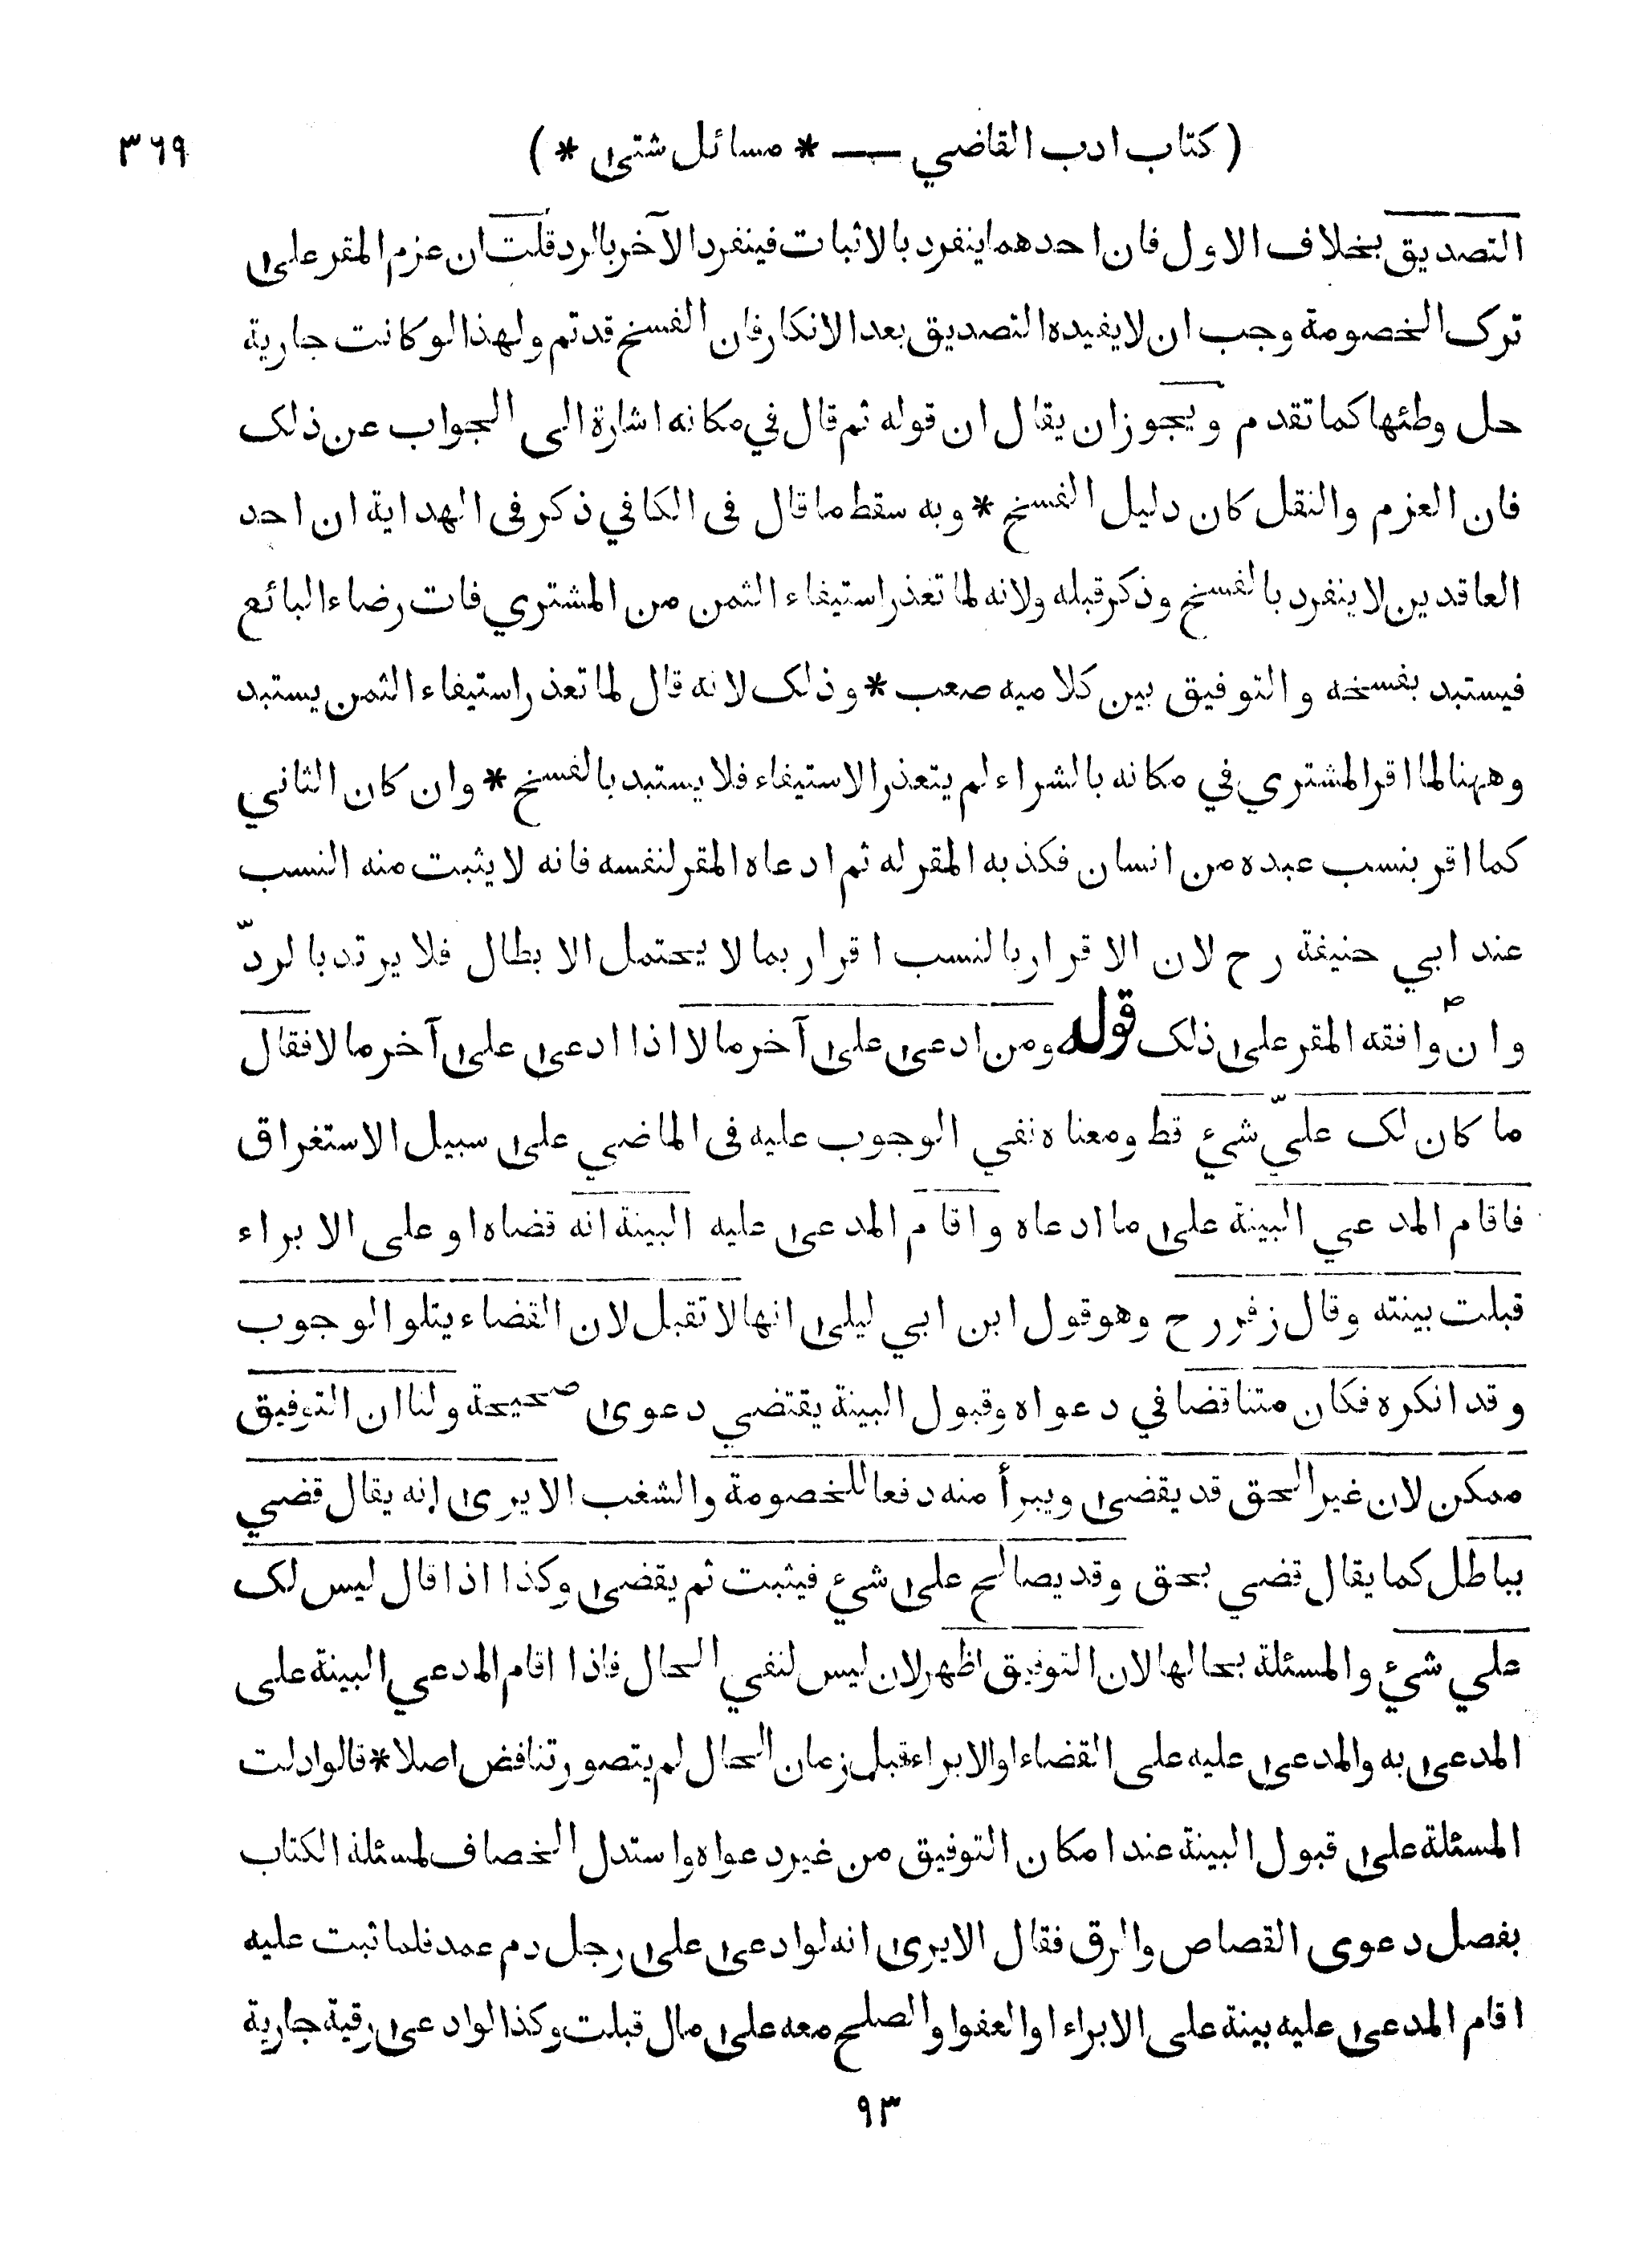 ( كتاب ادب القاضي — * مسائل شتى * ) ٣٦٩
التصديق بخلاف الاول فان احدهما ينفرد بالاثبات فينفرد الآخر بالرد قلت ان عزم المقر على
ترك الخصومة وجب ان لا يفيده التصديق بعد الانكار فان الفسخ قد تم ولهذا لو كانت جارية
حل وطئها كما تقدم ويجوز ان يقال ان قوله ثم قال في مكانه اشارة الى الجواب عن ذلك
فان العزم والنقل كان دليل الفسخ * وبه سقط ما قال فى الكافي ذكر فى الهداية ان احد
العاقدين لا ينفرد بالفسخ وذكر قبله ولانه لما تعذر استيفاء الثمن من المشتري فات رضاء البائع
فيستبد بفسخه والتوفيق بين كلاميه صعب * وذلك لانه قال لما تعذر استيفاء الثمن يستبد
وههنا لما اقر المشتري في مكانه بالشراء لم يتعذر الاستيفاء فلا يستبد بالفسخ * وان كان الثاني
كما اقر بنسب عبده من انسان فكذبه المقر له ثم ادعاه المقر لنفسه فانه لا يثبت منه النسب
عند ابي حنيفة رح لان الاقرار بالنسب اقرار بما لا يحتمل الابطال فلا يرتد بالردّ
وان وافقه المقر على ذلك قوله ومن ادعى على آخر مالا اذا ادعى على آخر مالا فقال
ما كان لك عليّ شيء قط ومعناه نفي الوجوب عليه فى الماضي على سبيل الاستغراق
فاقام المدعي البينة على ما ادعاه واقام المدعى عليه البينة انه قضاه او على الابراء
قبلت بينته وقال زفر رح وهو قول ابن ابي ليلى انها لا تقبل لان القضاء يتلو الوجوب
وقد انكره فكان متناقضا في دعواه وقبول البينة يقتضي دعوى صحيحة ولنا ان التوفيق
ممكن لان غير الحق قد يقضى ويبرأ منه دفعا للخصومة والشغب الا يرى إنه يقال قضي
بباطل كما يقال قضي بحق وقد يصالح على شيء فيثبت ثم يقضى وكذا اذا قال ليس لك
علي شيء والمسئلة بحالها لان التوفيق اظهر لان ليس لنفي الحال فاذا اقام المدعي البينة على
المدعى به والمدعى عليه على القضاء او الابراء قبل زمان الحال لم يتصور تناقض اصلا * قالوا دلت
المسئلة على قبول البينة عند امكان التوفيق من غير دعواه واستدل الخصاف لمسئلة الكتاب
بفصل دعوى القصاص والرق فقال الا يرى انه لو ادعى على رجل دم عمد فلما ثبت عليه
اقام المدعى عليه بينة على الابراء او العفو او الصلح معه على مال قبلت وكذا لو ادعى رقية جارية
٩٣